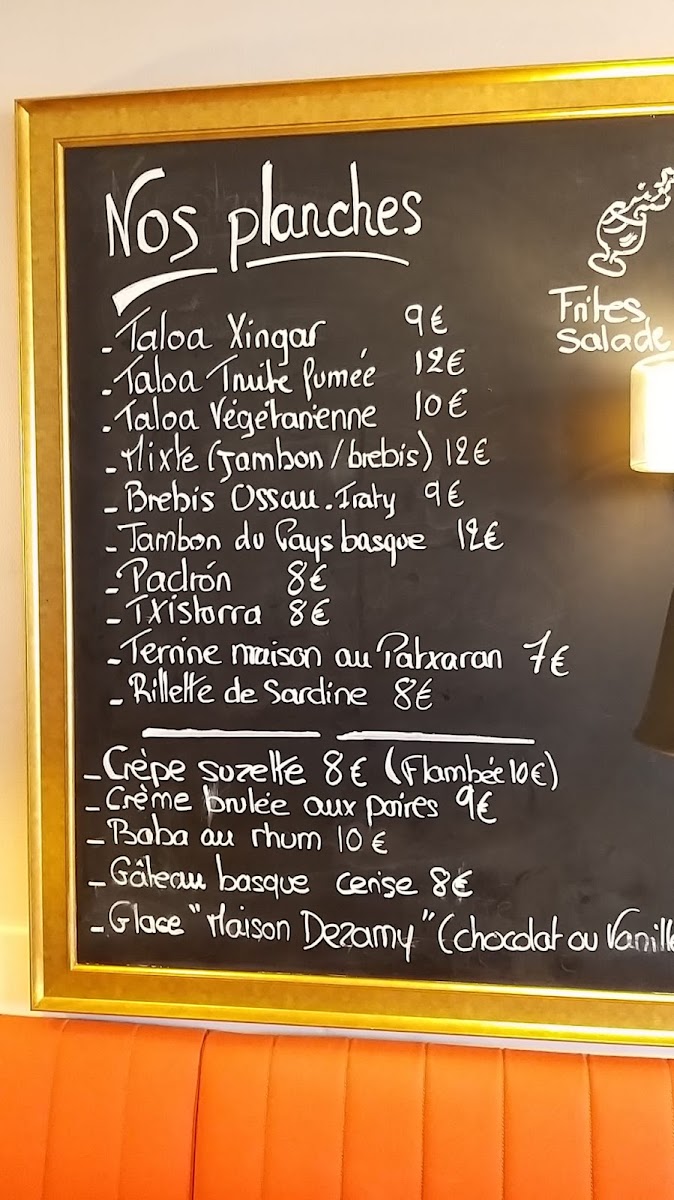 Nos planches
- Taloa Xingar 9€
- Taloa Truite fumée 12€
- Taloa Végétarienne 10€
- Mixte (Jambon / brebis) 12€
- Brebis Ossau.Iraty 9€
- Jambon du Pays basque 12€
- Padrón 8€
- Txistorra 8€
- Terrine maison au Patxaran 7€
- Rillette de Sardine 8€
Frites
Salade
- Crêpe suzette 8€ (Flambée 10€)
- Crème brulée aux poires 9€
- Baba au rhum 10€
- Gâteau basque cerise 8€
- Glace "Maison Dezamy" (chocolat ou Vanille